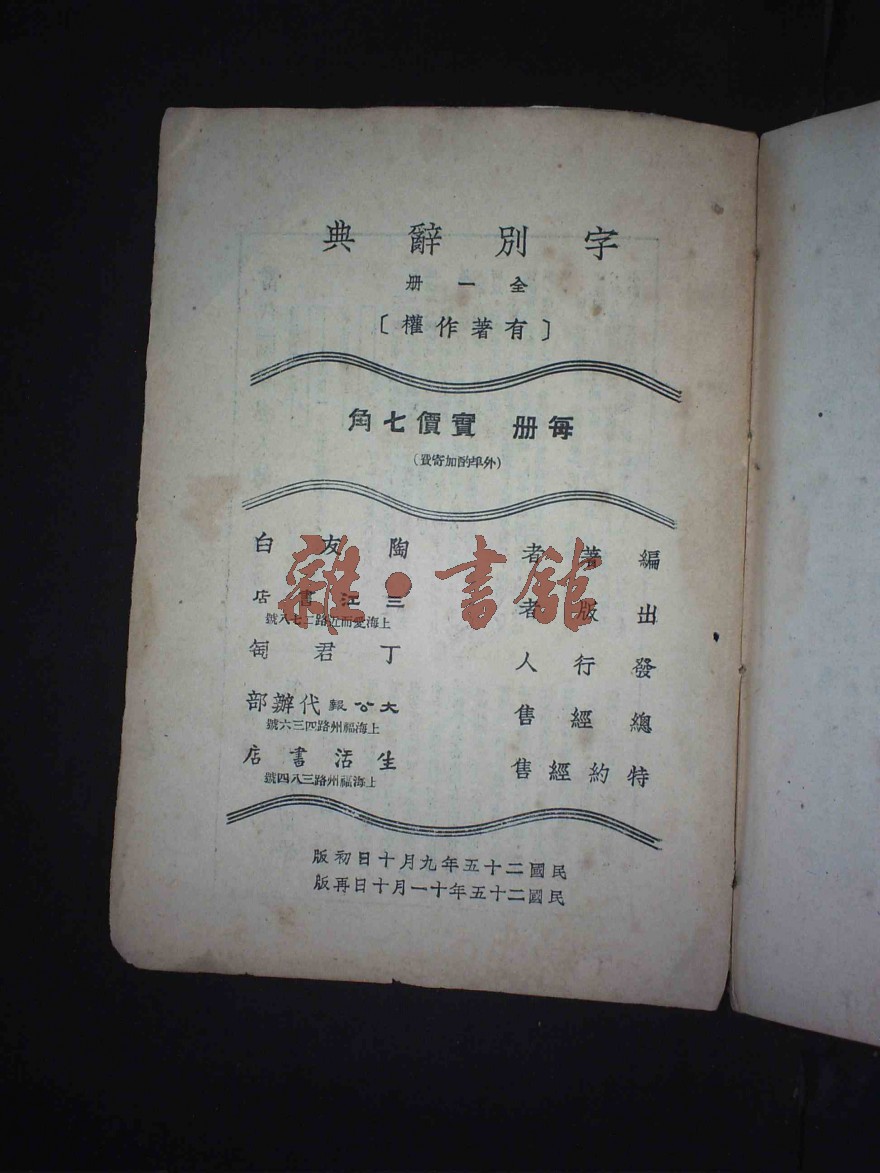 字別辭典
全一册
〔有著作權〕
每册 實價七角
（外埠酌加寄費）
編著者 陶友白
出版者 三江書店
上海愛而近路二七八號
發行人 丁君匋
總經售 大公報代辦部
上海福州路四三六號
特約經售 生活書店
上海福州路三八四號
民國二十五年九月十日初版
民國二十五年十一月十日再版
雜·書館